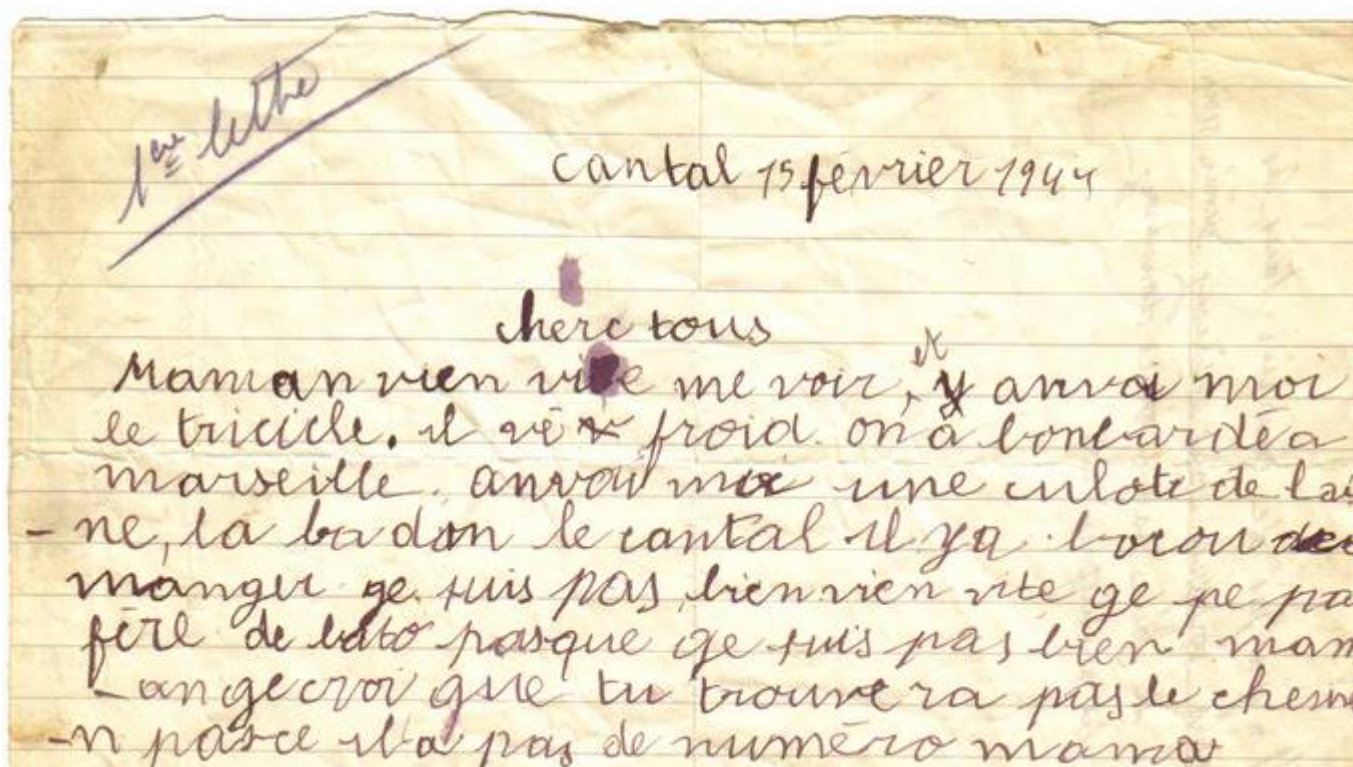 1ère lettre
Cantal 15 février 1944
cherc tous
Maman vien vite me voir, et anvoi moi
le tricicle. il froid. on a bonbardé a
marseille. anvoi moi une culote de lai
-ne, la ba dan le cantal il ya bocou de
manger ge suis pas bien vien vite ge pe pa
fère de bato pasque ge suis pas bien mam
-an ge croi que tu trouvera pas le chem
-n pasce il a pas de numéro mama